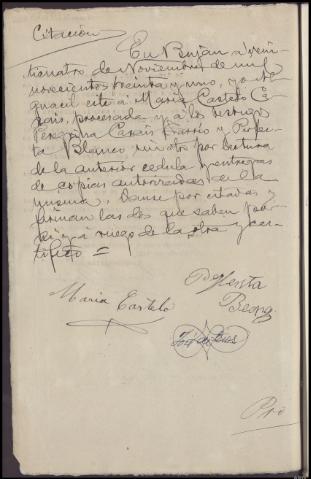 Citación
En Buján a vein-
ticuatro de Noviembre de mil
novecientos treinta y uno, yo el
guacil cité á María Castelo Ca
rais, procesada y á los testigos
Peregrina Carais Barrio y Perfec
ta Blanco por lectura
de la anterior cédula y entregas
de copias autorizadas de la
misma. Danse por citadas y
firman las dos que saben por
sí y á ruego de la otra y cer-
tifico =
María Castelo
Perfecta
Pro